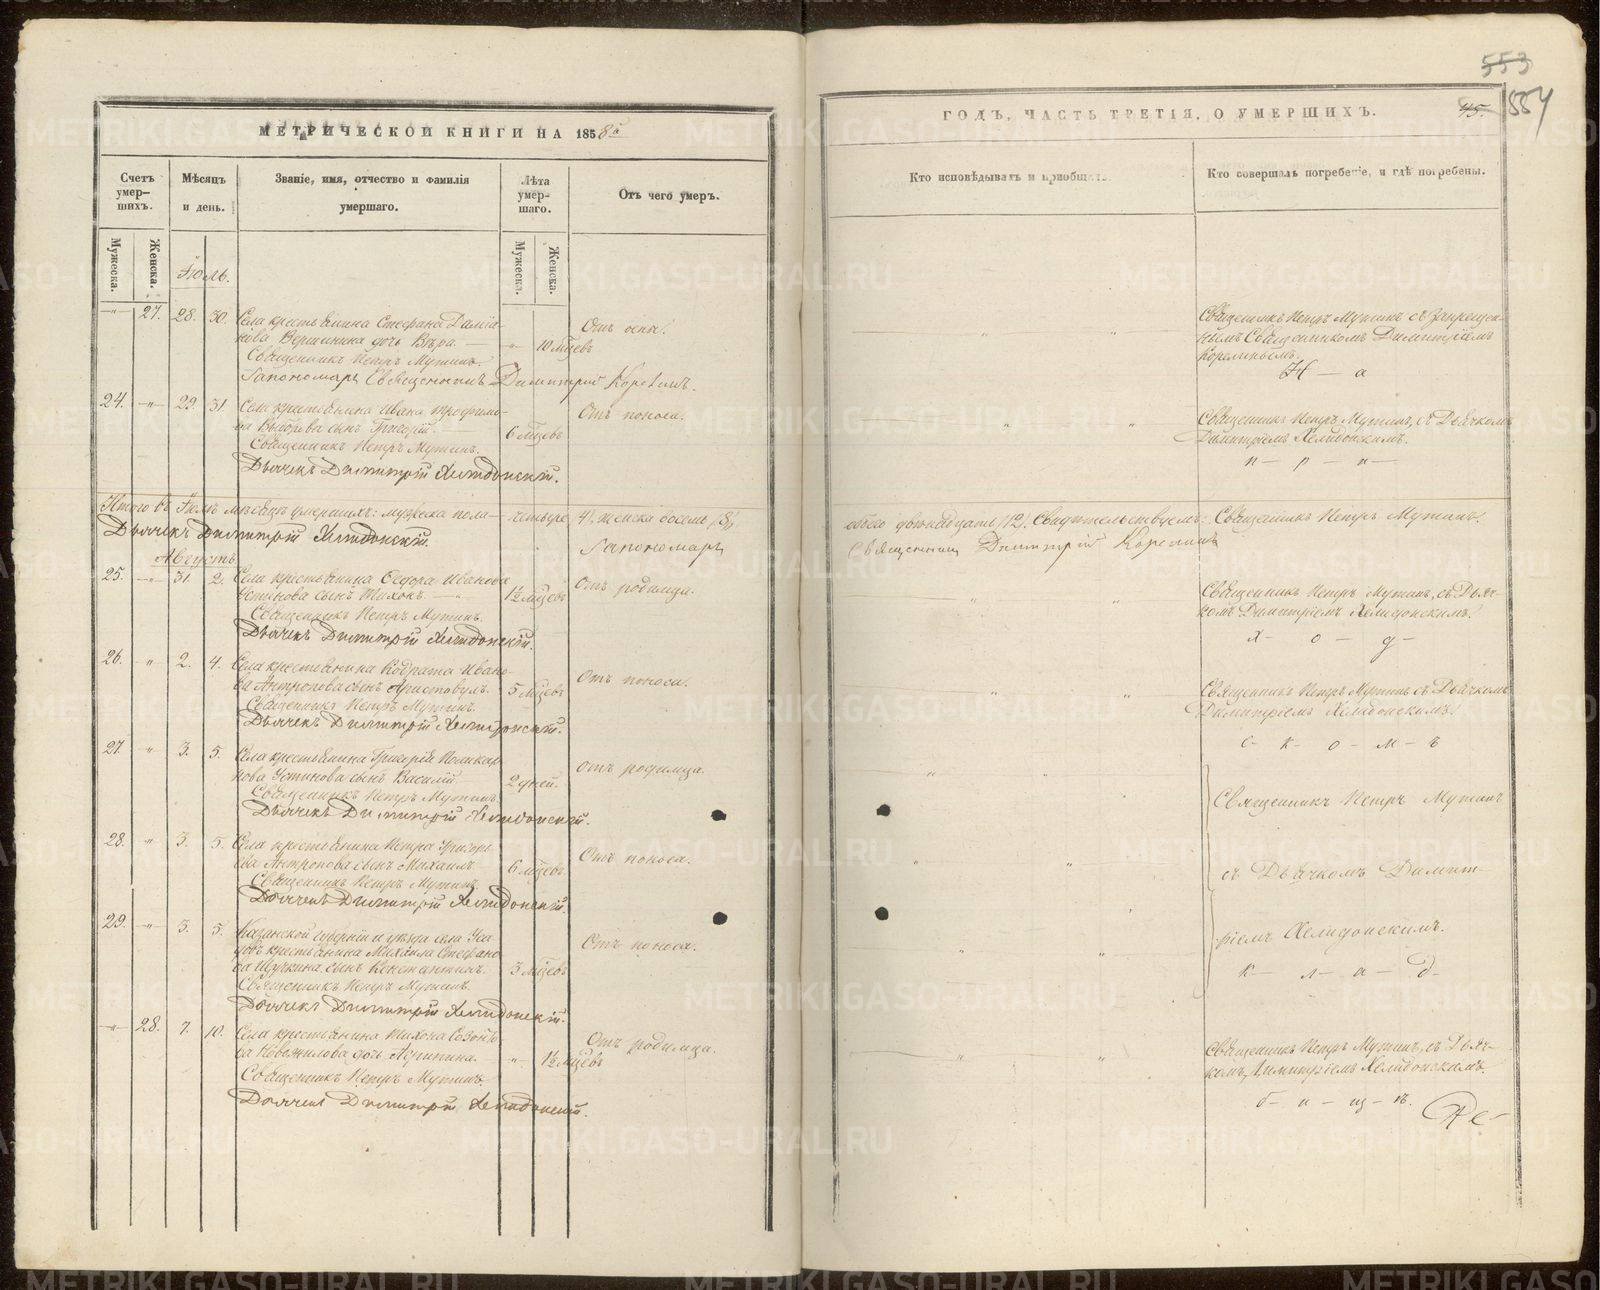 МЕТРИЧЕСКОЙ КНИГИ НА 1858й
Счетъ умер-
шихъ.
Мужеска.
Женска.
Мѣсяцъ
и день.
Званіе, имя, отчество и фамилія
умершаго.
Лѣта
умер-
шаго.
Мужеска.
Женска.
Отъ чего умеръ.
Іюль.
27. 28. 30. Села крестьянина Стефана Даміа-
нова Вершинина дочь Вѣра. 10 мцевъ Отъ оспы.
Священникъ Петръ Мутинъ.
Священникъ Димитрій Корелинъ.
24. 29. 31. Села крестьянина Ивана Трофимо-
ва сынъ Григорій. 6 мцевъ Отъ поноса.
Священникъ Петръ Мутинъ.
Дьячекъ Димитрій Хелидонскій.
Итого въ Іюлѣ мѣсяцѣ умершихъ: мужеска пола четыре 4. женска восемь /8/,
Дьячекъ Димитрій Хелидонскій.
Августъ.
25. 31. 2. Села крестьянина Ѳедора Иванова
Устинова сынъ Тихонъ. 1½ мцевъ Отъ родимца.
Священникъ Петръ Мутинъ.
Дьячекъ Димитрій Хелидонскій.
26. 2. 4. Села крестьянина Кодрата Ивано-
ва Антропова сынъ Аристовулъ. 5 мцевъ Отъ поноса.
Священникъ Петръ Мутинъ.
Дьячекъ Димитрій Хелидонскій.
27. 3. 5. Села крестьянина Григорія Поликар-
пова Устинова сынъ Василій. 2 дней. Отъ родимца.
Священникъ Петръ Мутинъ.
Дьячекъ Димитрій Хелидонскій.
28. 3. 5. Села крестьянина Петра Григорь-
ева Антропова сынъ Михаилъ 6 мцевъ Отъ поноса.
Священникъ Петръ Мутинъ.
Дьячекъ Димитрій Хелидонскій.
29. 3. 5. Казанской губерніи и уѣзда села
крестьянина Михаила Стефано-
ва Щучкина сынъ Константинъ. 3 мцевъ Отъ поноса.
Священникъ Петръ Мутинъ.
Дьячекъ Димитрій Хелидонскій.
28. 7. 10. Села крестьянина Тихона
дочь Агрипина. 1½ мцевъ Отъ родимца.
Священникъ Петръ Мутинъ.
Дьячекъ Димитрій Хелидонскій.
553
ГОДЪ, ЧАСТЬ ТРЕТІЯ, О УМЕРШИХЪ.
45.
554
Кто исповѣдывалъ и пріобщ
Кто совершалъ погребеніе, и гдѣ погребены.
Священникъ Петръ Мутинъ съ Запрещен-
нымъ Священникомъ Димитріемъ
Корелинымъ.
Н — а
Священникъ Петръ Мутинъ, съ Дьячкомъ
Димитріемъ Хелидонскимъ.
п — р — и —
обоего двѣнадцать /12/. Свидѣтельствуемъ: Священникъ Петръ Мутинъ.
Священникъ Димитрій Корелинъ
Священникъ Петръ Мутинъ, съ Дьяч-
комъ Димитріемъ Хелидонскимъ.
х — о — д —
Священникъ Петръ Мутинъ съ Дьячкомъ
Димитріемъ Хелидонскимъ.
с — к — о — м — ъ
Священникъ Петръ Мутинъ
съ Дьячкомъ Димит-
ріемъ Хелидонскимъ.
к — л — а — д —
Священникъ Петръ Мутинъ, съ Дьяч-
комъ Димитріемъ Хелидонскимъ.
METRIKI.GASO-URAL.RU